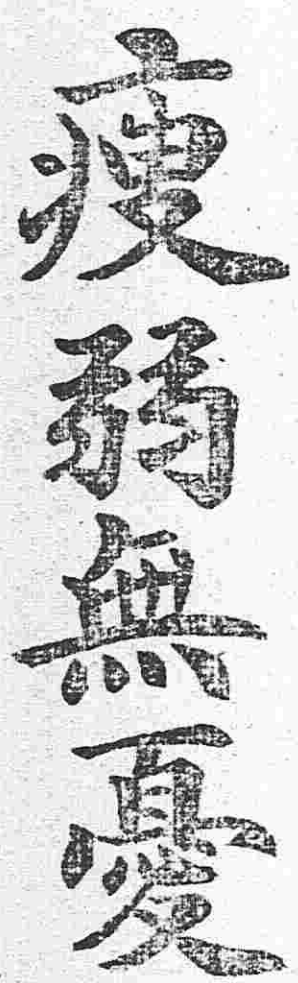 瘦弱無憂